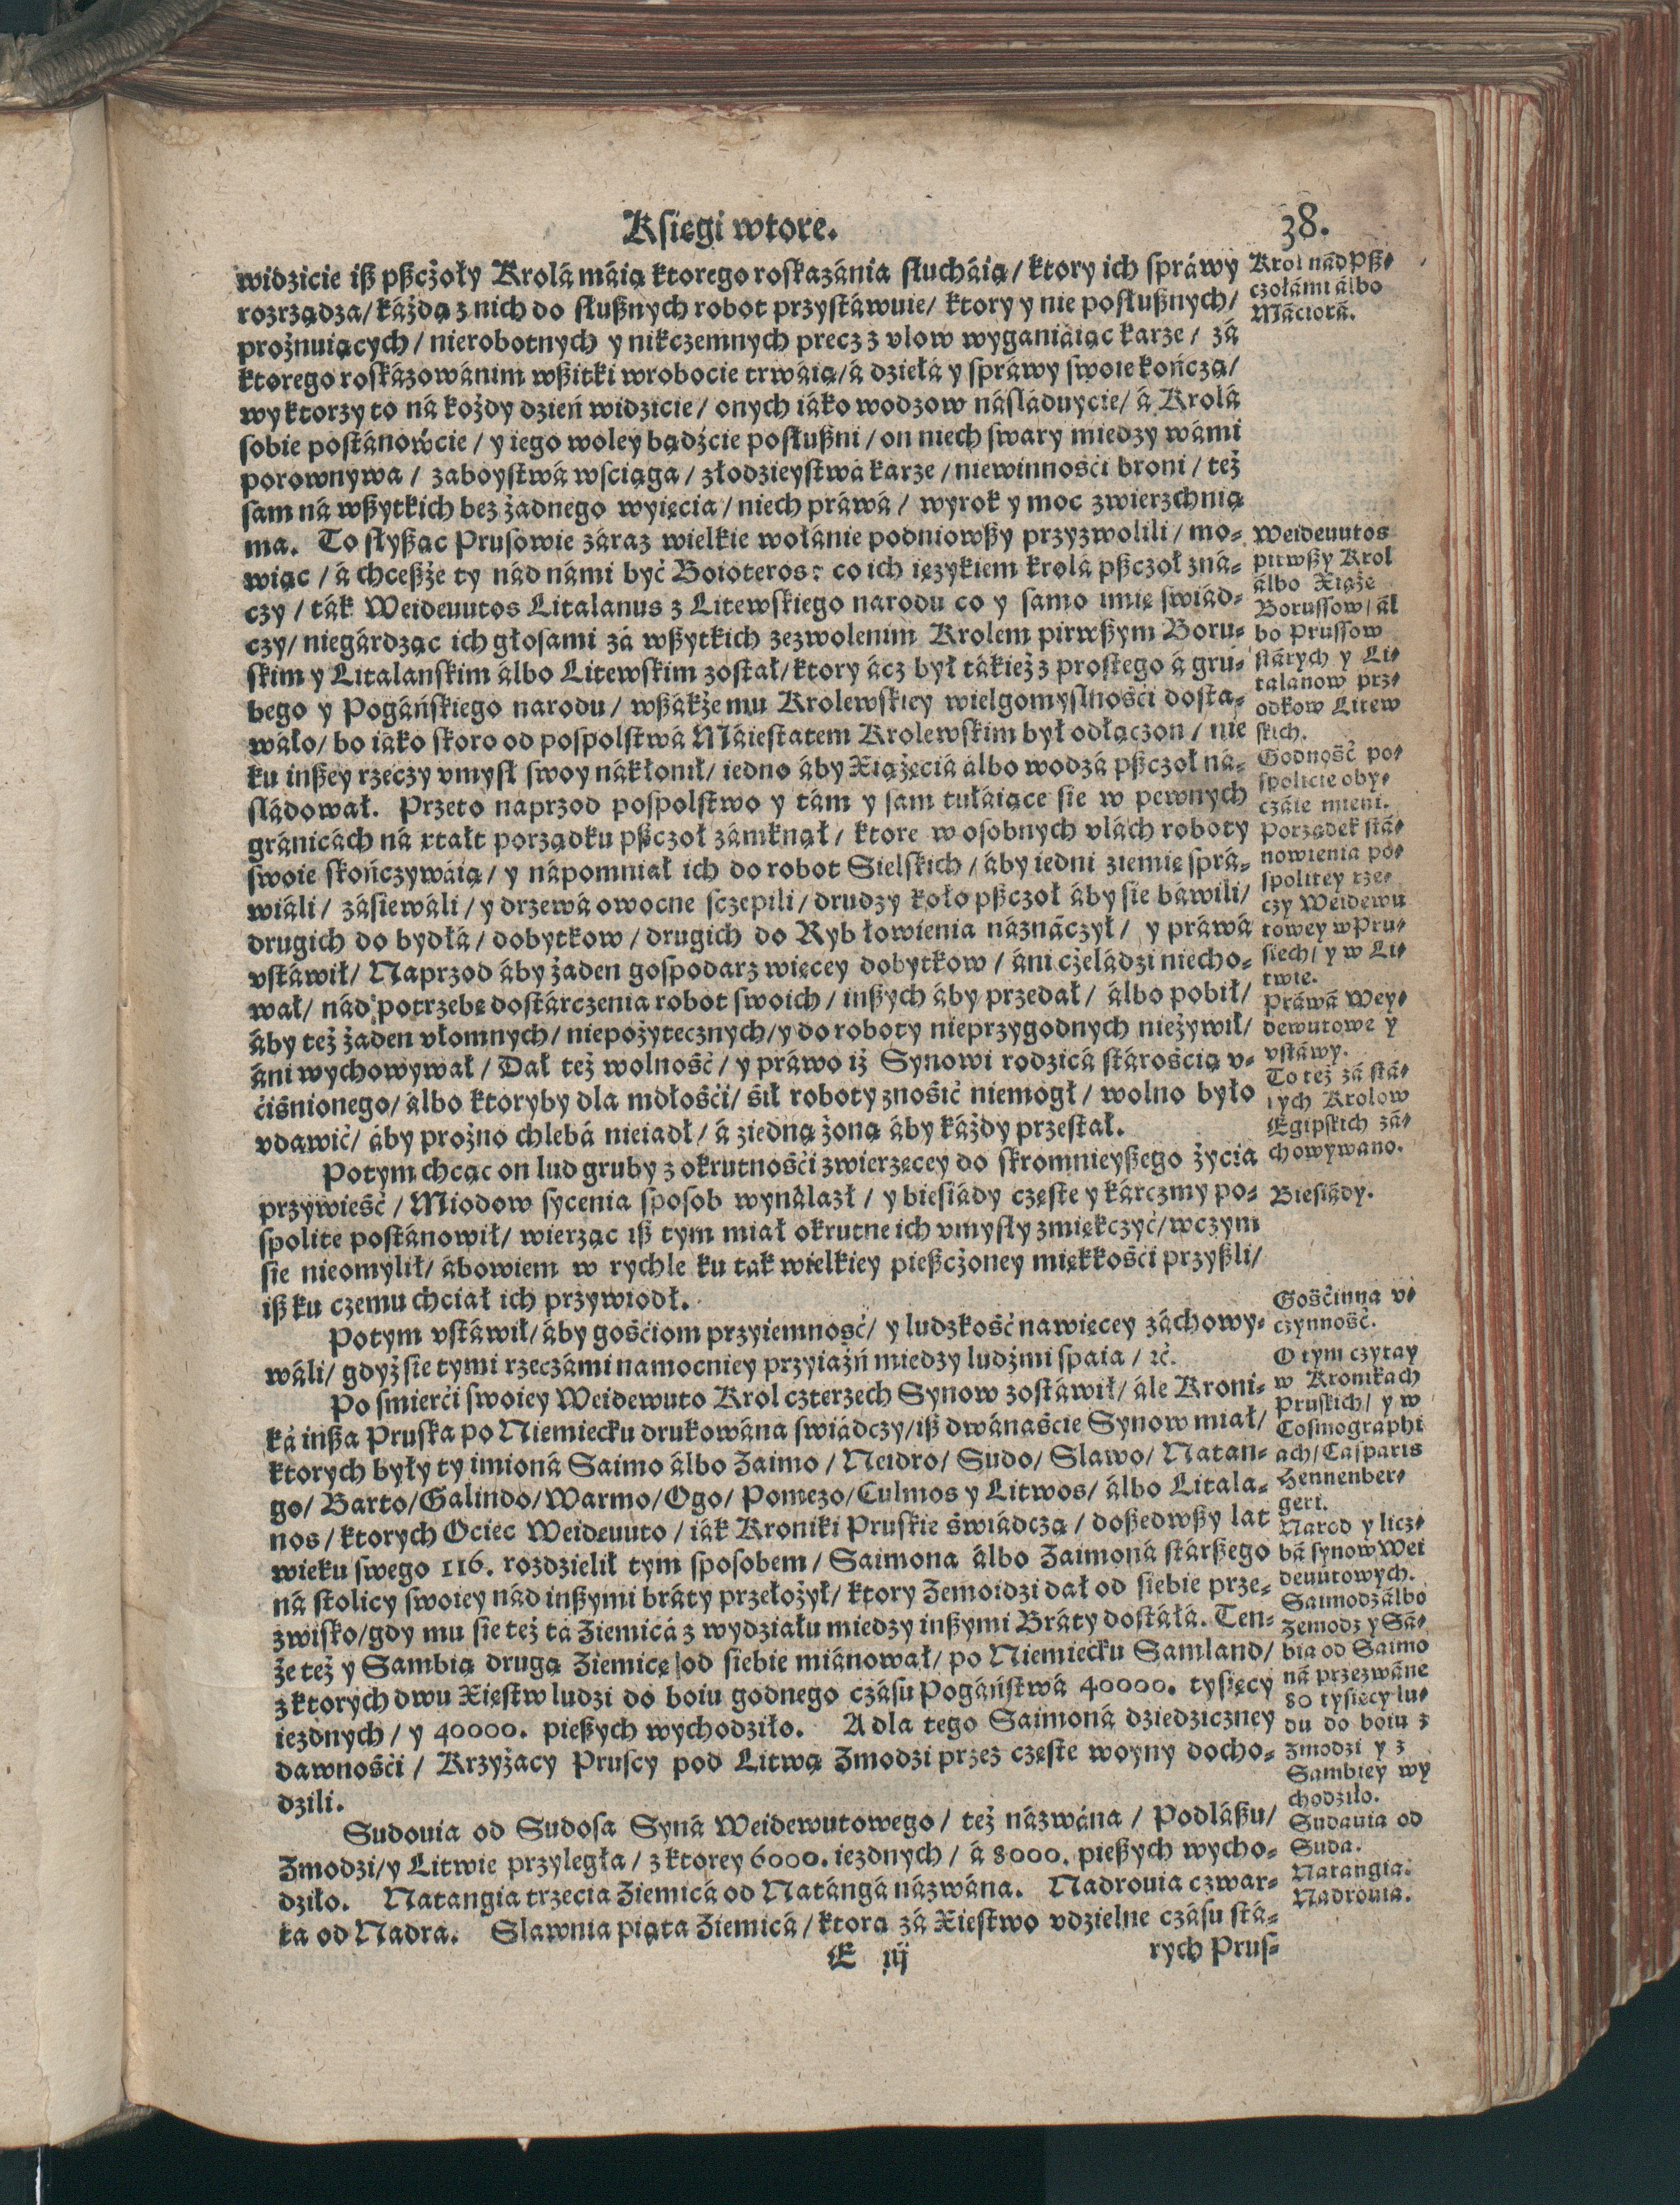 Księgi wtore.
38.
widzicie iß pßcżoły Krolá máią ktorego roskazánia słucháią / ktory ich spráwy
rozrządza / káżdą z nich do słußnych robot przystáwuie / ktory y nie posłußnych /
prożnuiących / nierobotnych y nikczemnych precz z vlow wyganiáiąc karze / zá
ktorego roskázowánim wßitki w robocie trwáią / á dziełá y spráwy swoie kończą /
wy ktorzy to ná kożdy dzień widzicie / onych iáko wodzow násláduycie / á Krolá
sobie postánowćie / y iego woley bądźcie posłußni / on niech swary miedzy wámi
porownywa / zaboystwá wściąga / złodzieystwá karze / niewinnośći broni / też
sam ná wßytkich bez żadnego wyięcia / niech práwá / wyrok y moc zwierzchnią
ma. To słyßąc Prusowie záraz wielkie wołánie podniowßy przyzwolili / mo-
wiąc / á chceßże ty nád námi być Boioteros: co ich ięzykiem krolá pßczoł zná-
czy / ták Weideuutos Litalanus z Litewskiego narodu co y samo imię swiád-
czy / niegárdząc ich głosami zá wßytkich zezwolenim Krolem pirwßym Boru-
skim y Litalanskim álbo Litewskim został / ktory ácz był tákież z prostego á gru-
bego y Pogáńskiego narodu / wßákże mu Krolewskiey wielgomyslnośći dosta-
wáło / bo iáko skoro od pospolstwá Máiestatem Krolewskim był odłączon / nie
ku inßey rzeczy vmysł swoy nákłonił / iedno áby Xiążęciá álbo wodzá pßczoł ná-
sládował. Przeto naprzod pospolstwo y tám y sam tułáiące sie w pewnych
gránicách ná xtałt porządku pßczoł zámknął / ktore w osobnych vlách roboty
swoie skończywáią / y nápomniał ich do robot Sielskich / áby iedni ziemię sprá-
wiáli / zásiewáli / y drzewá owocne sczepili / drudzy koło pßczoł áby sie báwili /
drugich do bydłá / dobytkow / drugich do Ryb łowienia náznáczył / y práwá
vstáwił / Naprzod áby żaden gospodarz więcey dobytkow / áni czeládzi niecho-
wał / nád potrzebę dostárczenia robot swoich / inßych áby przedał / álbo pobił /
áby też żaden vłomnych / niepożytecznych / y do roboty nieprzygodnych nieżywił /
áni wychowywał / Dał też wolność / y práwo iż Synowi rodzicá stárością v-
ćiśnionego / álbo ktoryby dla mdłośći / śił roboty znośić niemogł / wolno było
vdawić / áby prożno chlebá nieiadł / á z iedną żoną áby káżdy przestał.
Potym chcąc on lud gruby z okrutnośći zwierzęcey do skromnieyßego życia
przywieść / Miodow sycenia sposob wynálazł / y biesiády częste y kárczmy po-
spolite postánowił / wierząc iß tym miał okrutne ich vmysły zmiękczyć / w czym
sie nieomylił / ábowiem w rychle ku tak wielkiey pießcżoney miękkośći przyßli /
iß ku czemu chciał ich przywiodł.
Potym vstáwił / áby gośćiom przyiemność / y ludzkość nawięcey záchowy-
wáli / gdyż sie tymi rzeczámi namocniey przyiaźń miedzy ludźmi spaia / ꝛć.
Po smierći swoiey Weidewuto Krol czterzech Synow zostáwił / ále Kroni-
ká inßa Pruska po Niemiecku drukowána swiádczy / iß dwánaście Synow miał /
ktorych były ty imioná Saimo álbo Zaimo / Neidro / Sudo / Slawo / Natan-
go / Barto / Galindo / Warmo / Ogo / Pomezo / Culmos y Litwos / álbo Litala-
nos / ktorych Ociec Weideuuto / iák Kroniki Pruskie świádczą / doßedwßy lat
wieku swego 116. rozdzielił tym sposobem / Saimona álbo Zaimoná stárßego
ná stolicy swoiey nád inßymi bráty przełożył / ktory Zemoidzi dał od siebie prze-
zwisko / gdy mu sie też tá Ziemicá z wydziału miedzy inßymi Bráty dostáłá. Ten-
że też y Sambią drugą Ziemicę od siebie miánował / po Niemiecku Samland /
z ktorych dwu Xięstw ludzi do boiu godnego czásu Pogáństwá 40000. tysięcy
iezdnych / y 40000. pießych wychodziło. A dla tego Saimoná dziedziczney
dawnośći / Krzyżacy Pruscy pod Litwą Zmodzi przez częste woyny docho-
dzili.
Sudouia od Sudosa Syná Weidewutowego / też názwána / Podláßu /
Zmodzi / y Litwie przyległa / z ktorey 6000. iezdnych / á 8000. pießych wycho-
dziło. Natangia trzecia Ziemicá od Natángá názwána. Nadrouia czwar-
ta od Nadra. Slawnia piąta Ziemicá / ktora zá Xiestwo vdzielne czásu stá-
E iij
rych Prus-
Krol nád pß-
czołámi álbo
Máciorá.
Weideuutos
pirwßy Krol
álbo Xiążę
Borussow / ál
bo Prussow
stárych y Li-
talanow prz-
odkow Litew
skich.
Godność po-
spolicie oby-
czáie mieni.
Porządek stá-
nowienia po-
spolitey rze-
czy Weidewu
towey w Pru-
siech / y w Li-
twie.
Práwá Wey-
dewutowe y
vstáwy.
To też zá stá-
rych Krolow
Egipskich zá-
chowywano.
Biesiády.
Gośćinna v-
czynność.
O tym czytay
w Kronikach
Pruskich / y w
Cosmographi
ach / Casparis
Hennenber-
geri.
Narod y licz-
bá synow Wei
deuutowych.
Saimodź álbo
Zemodz y Sá-
bia od Saimo
ná przezwáne
80 tysięcy lu-
du do boiu z
Zmodzi y z
Sambiey wy
chodziło.
Sudauia od
Suda.
Natangia.
Nadrouia.